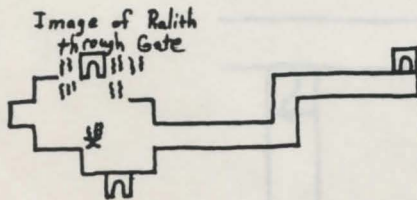 Image of Ralith
through Gate